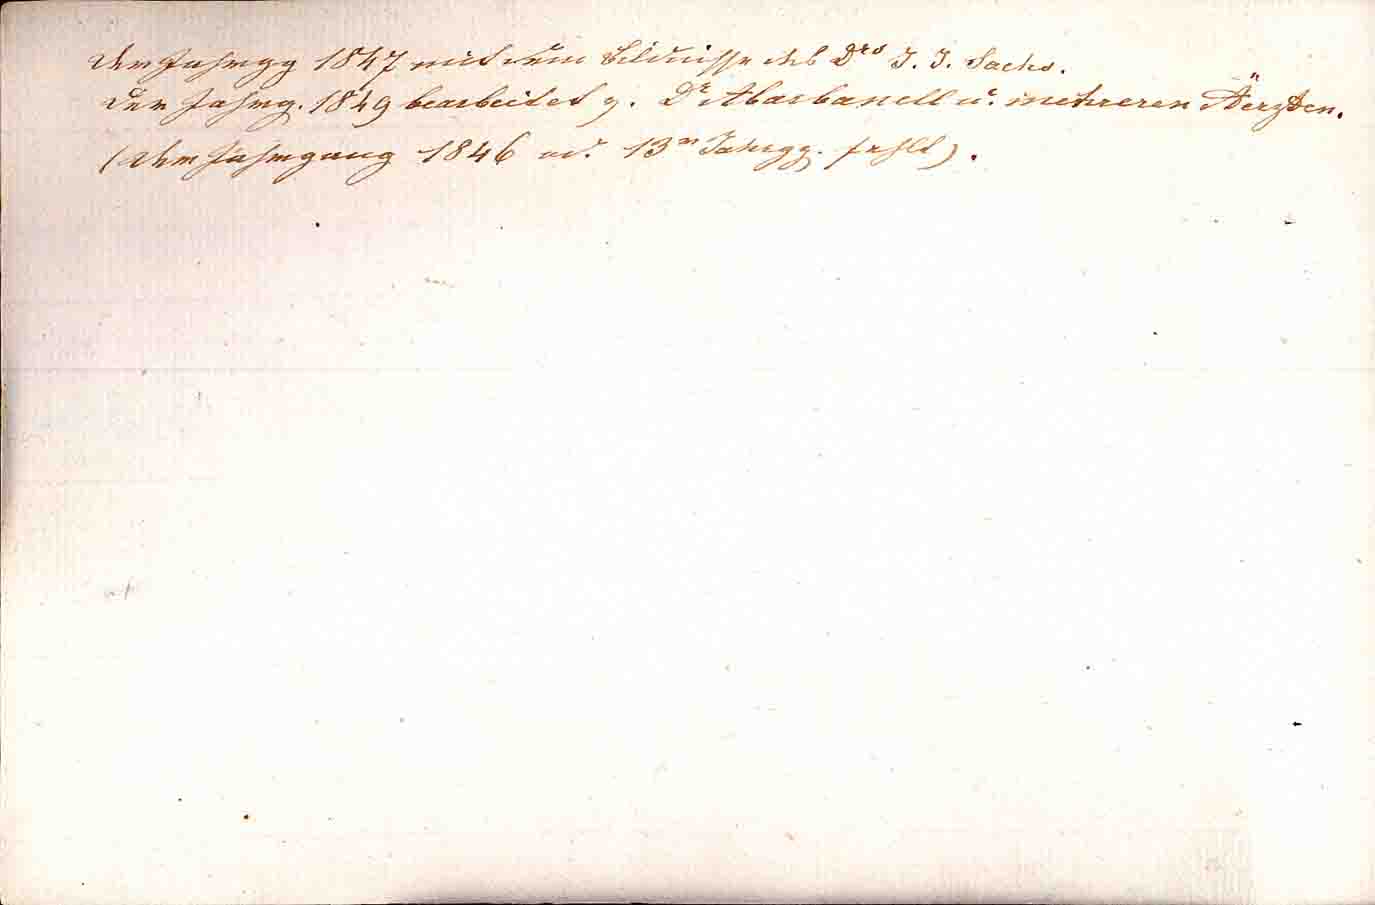 Der Jahrgg 1847 mit dem Bildnisse des Drs J. J. Sachs.
Der Jahrg. 1849 bearbeitet v. Dr Abarbanell u. mehreren Äerzten.
(Der Jahrgang 1846 od. 13r Jahrgg. fehlt).